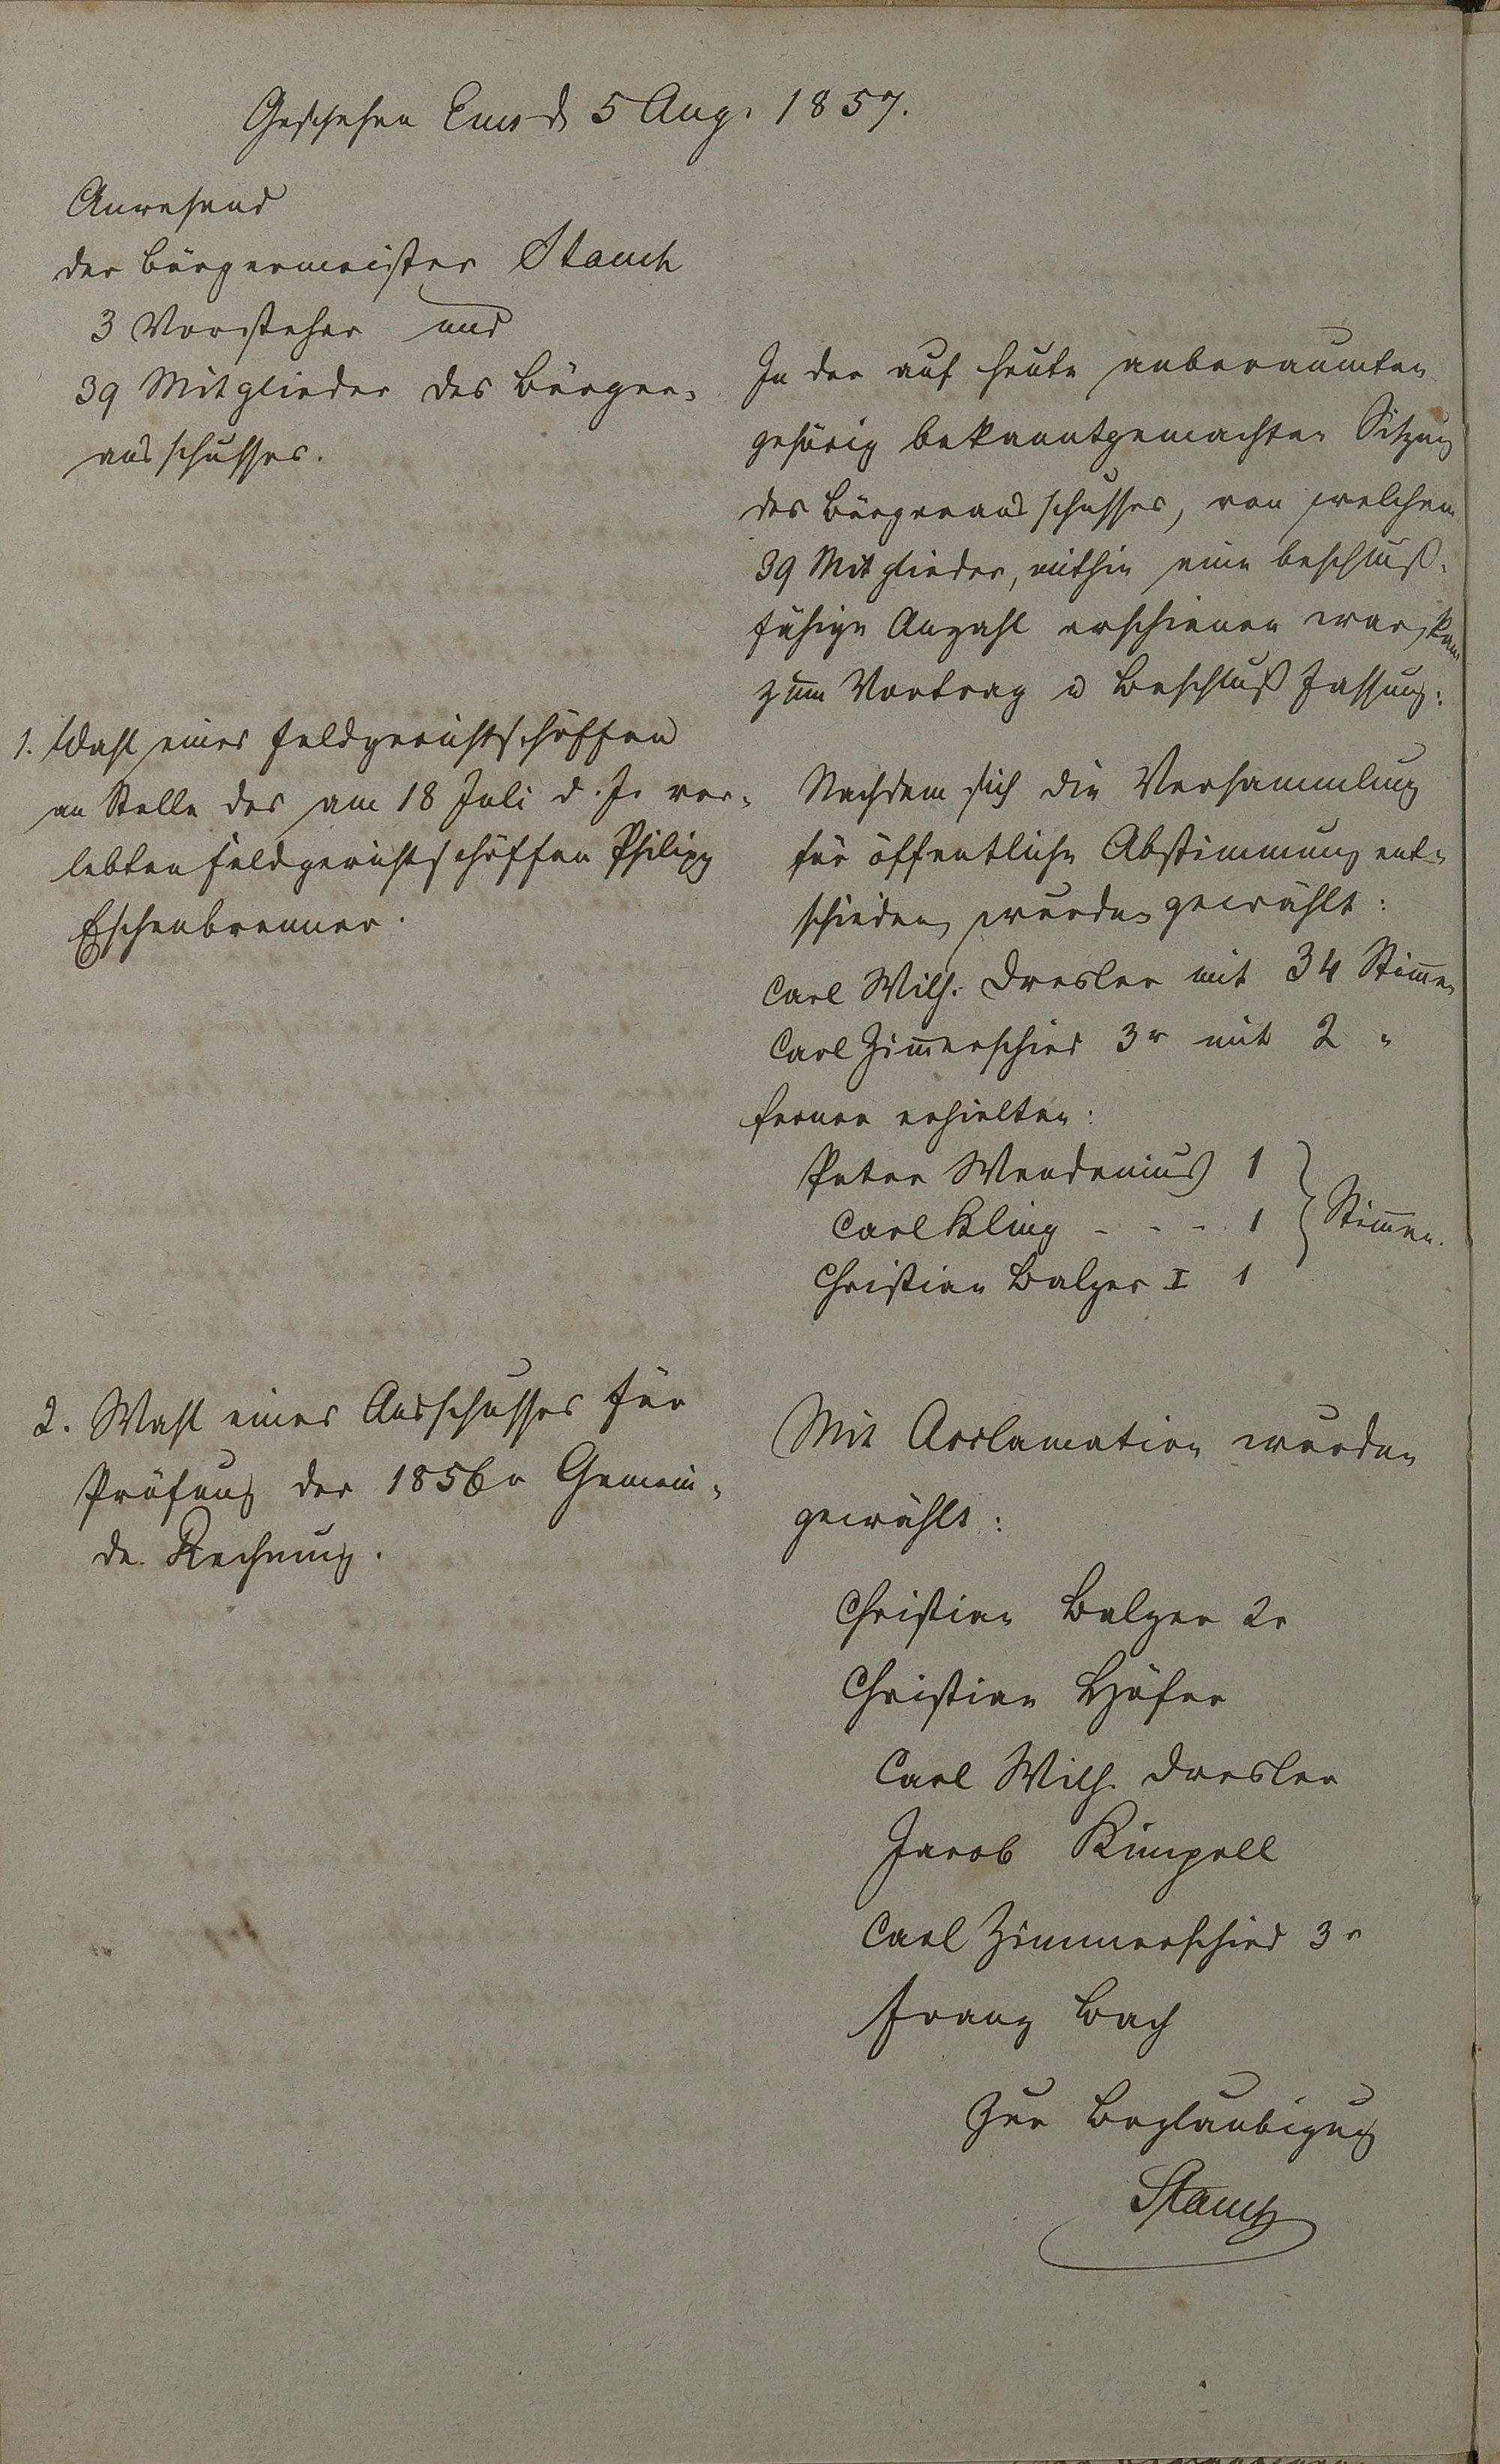 Geschehen Ems d 5 Aug. 1857.
Anwesend
der Bürgermeister Stauch
3 Vorsteher und
39 Mitglieder des Bürger-
ausschusses.
In der auf heute anberaumten
gehörig bekanntgemachten Sitzung
des Bürgerausschusses, von welchem
39 Mitglieder, mithin eine beschluß-
fähige Anzahl erschienen war, kam
zum Vortrag u Beschluß Fassung:
1. Wahl eines Feldgerichtschöffen
an Stelle des am 18 Juli d. J. ver-
lebten Feldgerichtschöffen Philipp
Eschenbrenner.
Nachdem sich die Versammlung
für öffentliche Abstimmung ent-
schieden, wurden gewählt:
Carl Wilh. Dresler mit 34 Stimmen
Carl Zimmerschied 3r mit 2 "
ferner erhielten:
Peter Wendenius 1
Carl Kling - - - 1 Stimmen.
Christian Balzer I 1
2. Wahl eines Ausschusses für
Prüfung der 1856r Gemein-
de Rechnung.
Mit Acclamation wurden
gewählt:
Christian Balzer 2r
Christian Höfer
Carl Wilh. Dresler
Jacob Kimpell
Carl Zimmerschied 3r
Franz Bach
Zur Beglaubigung
Stauch